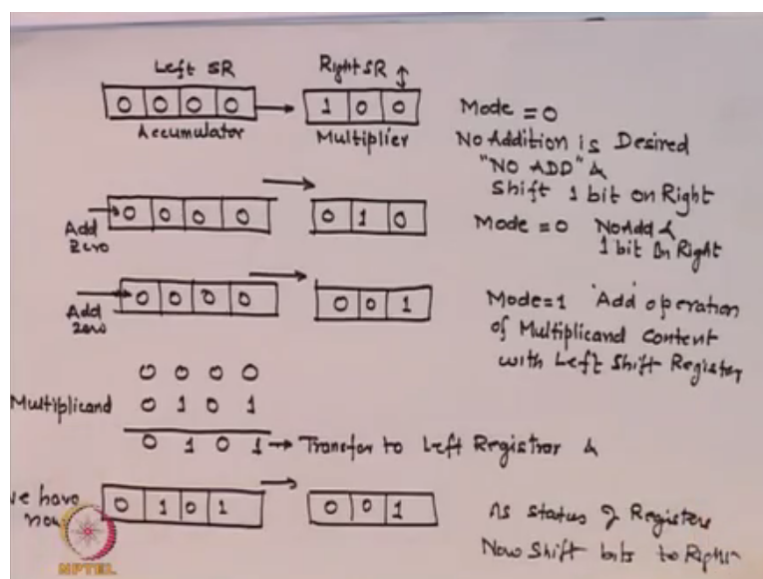 Left SR Right SR
0 0 0 0 1 0 0 Mode = 0
Accumulator Multiplier No Addition is Desired
"NO ADD" &
Shift 1 bit on Right
Add Zero 0 0 0 0 0 1 0 Mode = 0 No Add &
1 bit on Right
Add zero 0 0 0 0 0 0 1 Mode=1 Add operation
of Multiplicand Content
with Left Shift Register
0 0 0 0
Multiplicand 0 1 0 1
0 1 0 1 → Transfer to Left Registror &
we have now 0 1 0 1 0 0 1 As status of Registers
Now Shift bits to Right
NPTEL